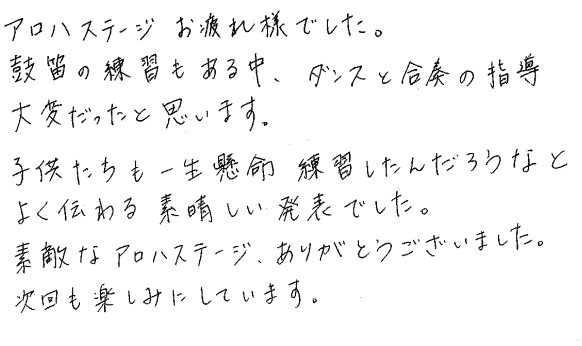 アロハステージ お疲れ様でした。
鼓笛の練習もある中、ダンスと合奏の指導
大変だったと思います。
子供たちも一生懸命 練習したんだろうなと
よく伝わる 素晴しい発表でした。
素敵なアロハステージ、ありがとうございました。
次回も楽しみにしています。